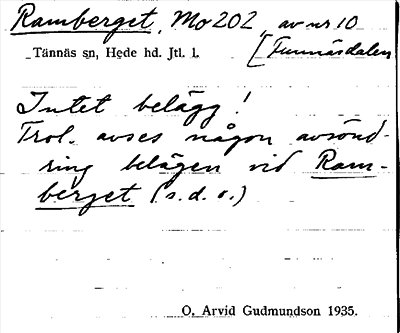 Ramberget, Mo 202, av nr 10
Tännäs sn, Hede hd. Jtl. l. [Funnäsdalen
Intet belägg!
Trol. avses någon avsönd-
ring belägen vid Ram-
berget (s.d.o.)
O. Arvid Gudmundson 1935.